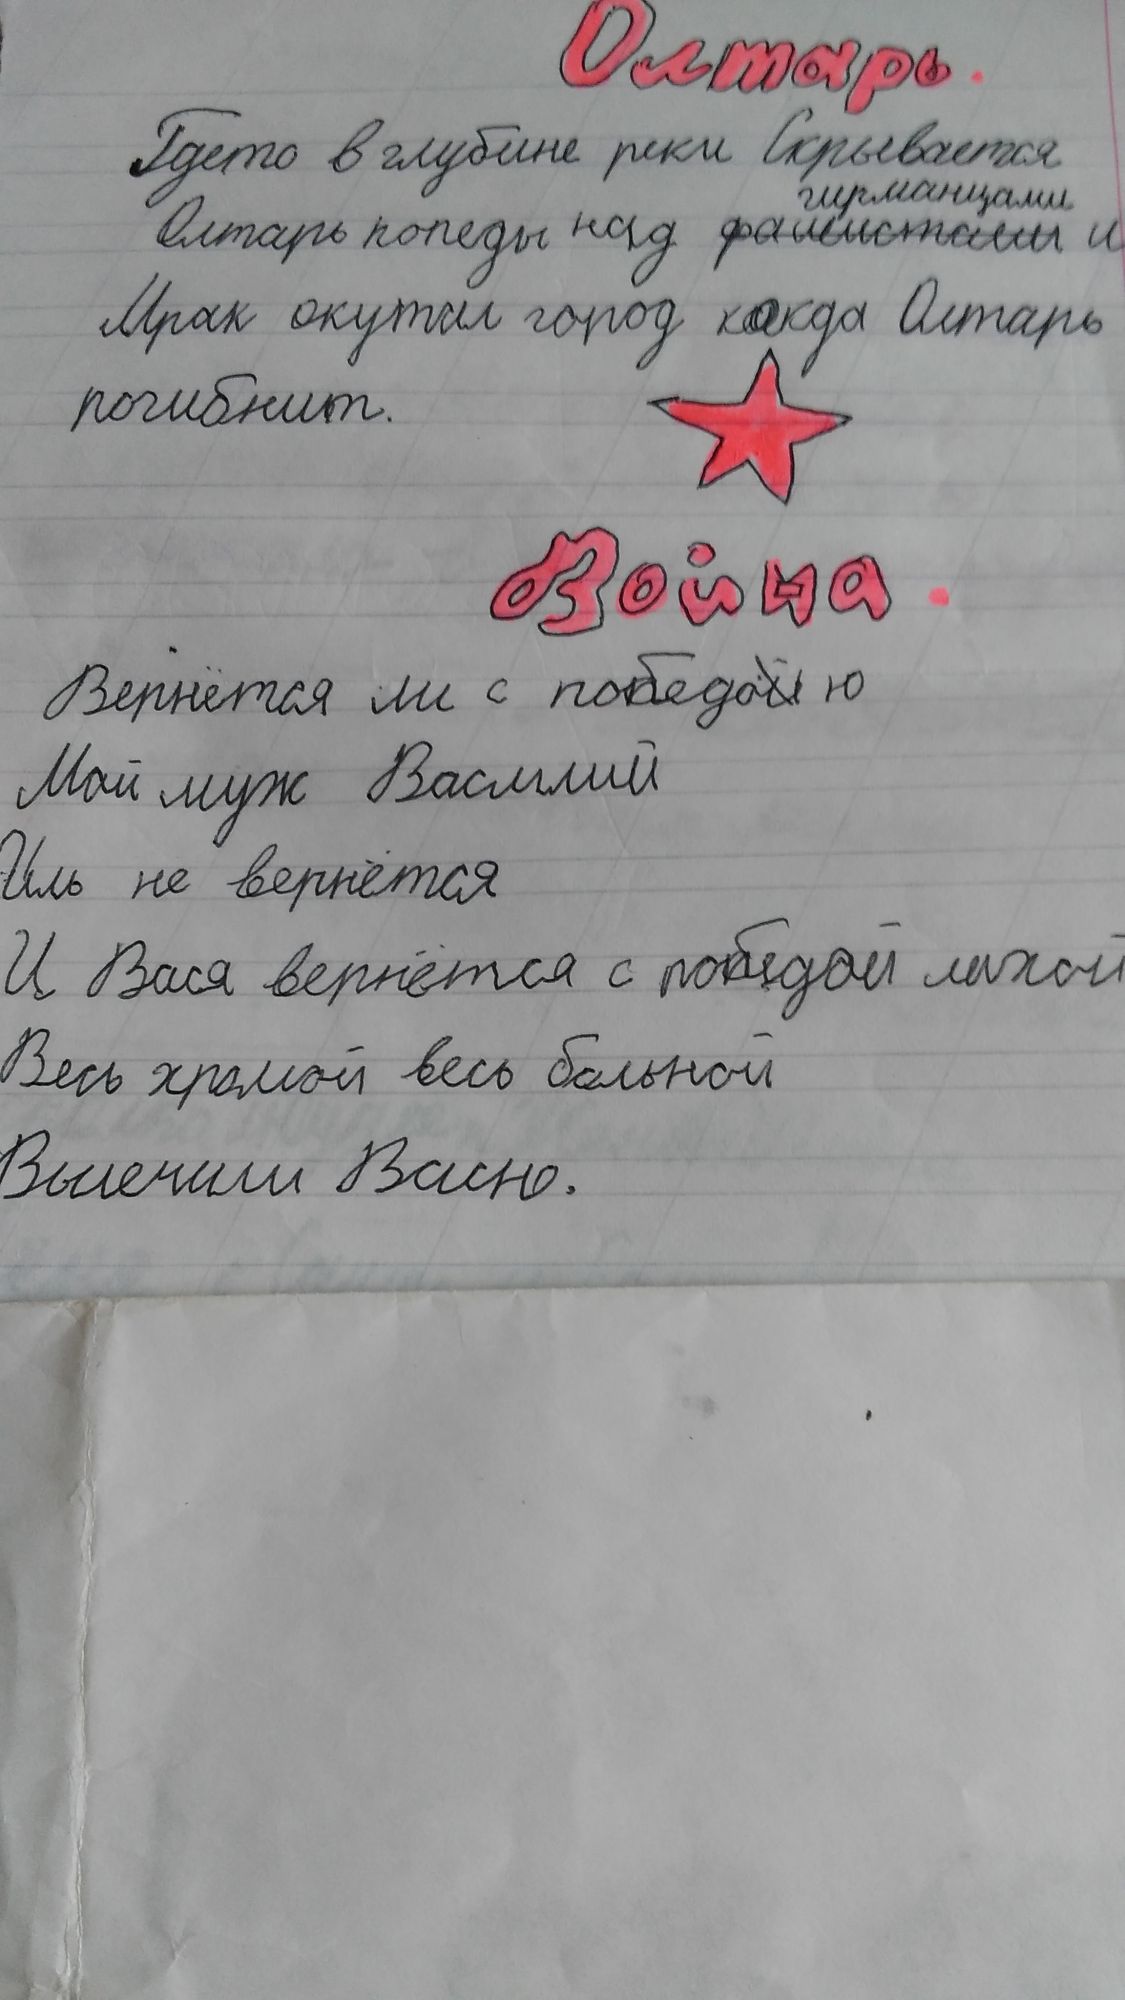 Олтарь.
Гдето в глубине реки Скрывается
гирманцами
Олтарь попеды над фашистами и
Мрак окутал город кокда Олтарь
погибнит.
Война.
Вернётся ли с победою
Мой муж Василий
Иль не вернётся
И Вася вернётся с победой лихой
Весь хромой весь больной
Вылечили Васю.